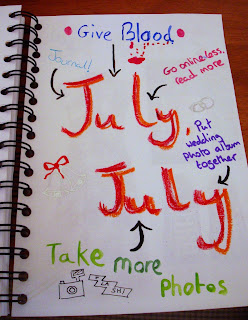 Give Blood
Journal!
Go online less,
read more
July,
Put
wedding
photo album
together
July
Take more
Photos
FLASH!